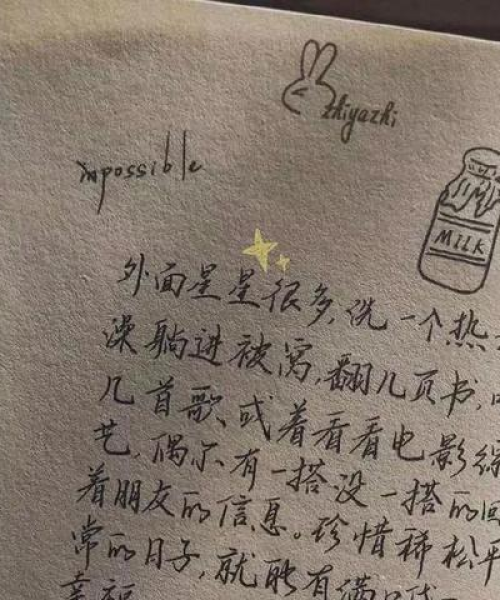 zhiyazhi
impossible
MILK
外面星星很多,洗一个热
澡躺进被窝,翻几页书,
几首歌、或着看看电影综
艺,偶尔有一搭没一搭的回
着朋友的信息。珍惜稀松平
常的日子,就能有满口袋
幸福